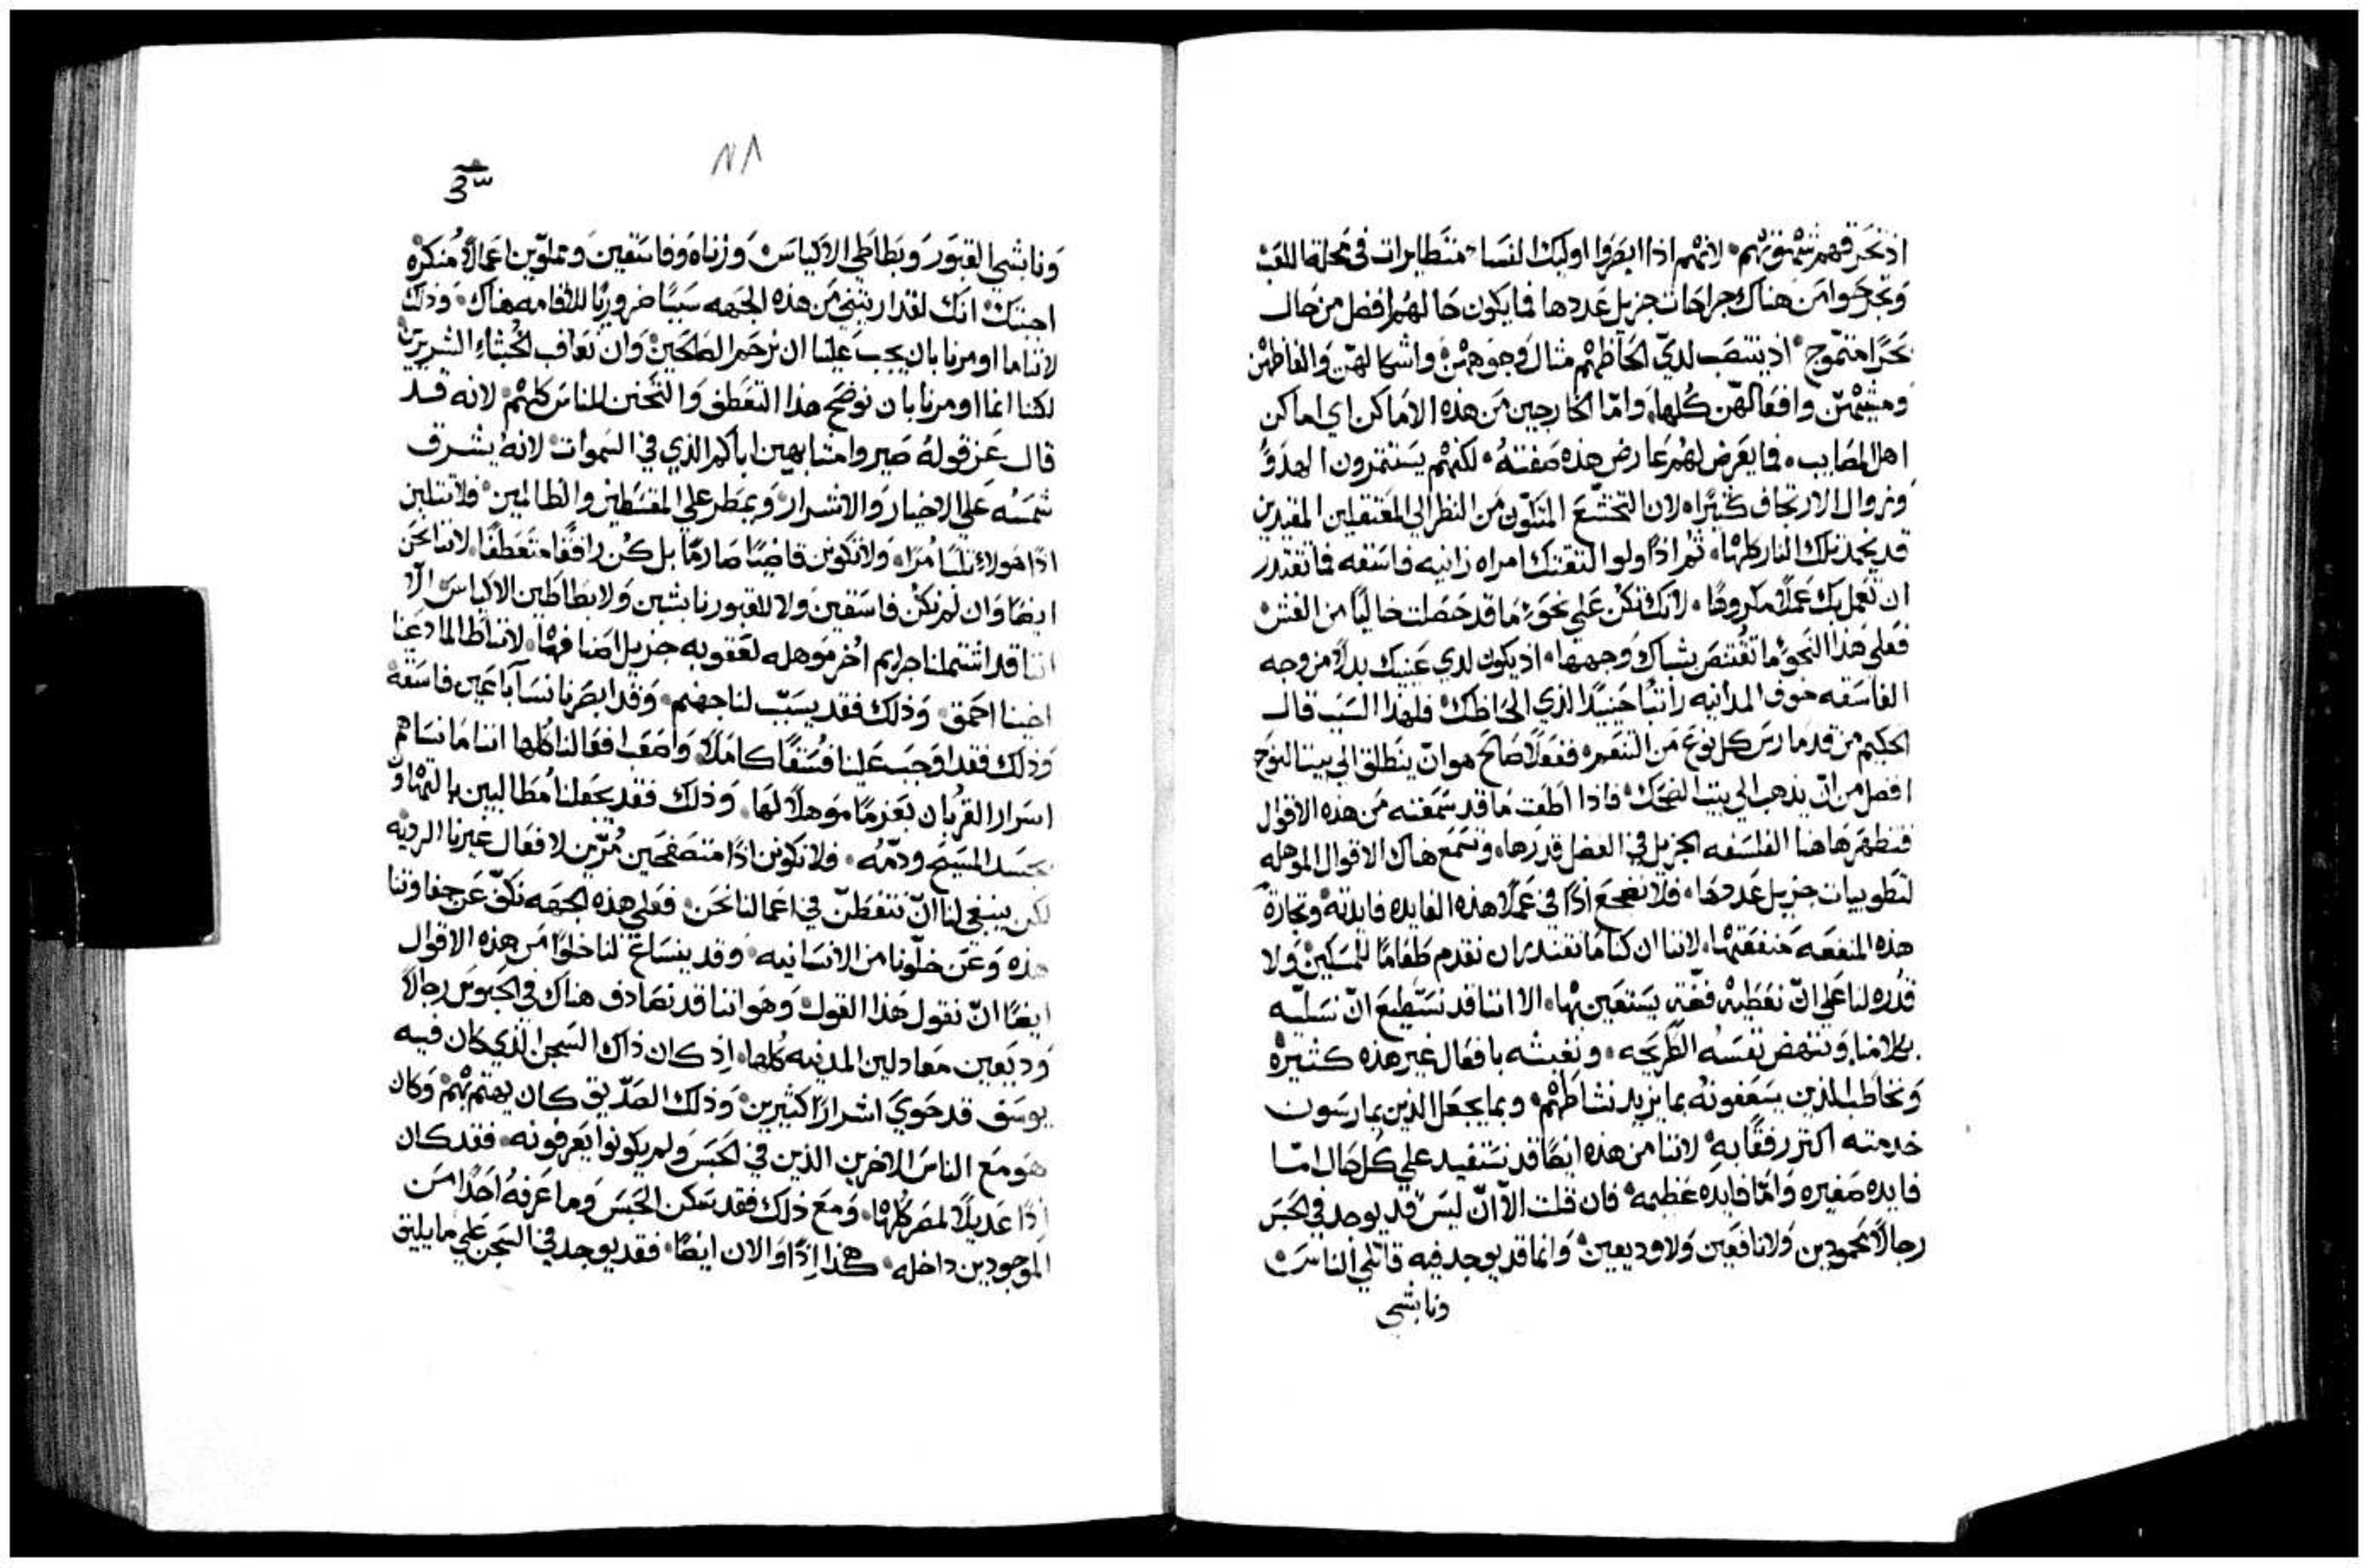 اذ تحرقهم شهوتهم. لانهم اذا ابصروا اوليك النسا متظاهرات في محلة اللعب
وتجرحوا من هناك جراحات جزيل عددها فما يكون حالهم افضل من حال
بحرًا متموج. اذ ينتصب لديّ الحاظهم مثال وجوههن واشكالهن والفاظهن
ومشيتهن وافعالهن كلها. وامّا الخارجين من هذه الاماكن اي اماكن
اهل المصايب. فما يعرض لهم عارض هذه صفته. لكنهم يستثمرون الهدوّ
وزوال الارتجاف كثيرًا. لان التخشّع المتكون من النظر الي المعتقلين المقيدين
قد يخمد تلك النار كلها. ثم اذًا ولو التقتك امراه زانيه فاسقه فما تقتدر
ان تعمل بك عملاً مكروهًا. لانك تكن علي نحو ما قد حصلت خاليًا من الغش
فعلي هذا النحو ما تُقتنص بشباك وجهها. اذ يكون لدي عينيك بدلاً من وجه
الفاسقه خوف المداينه راتبًا حينيدًا لدي الحاظك. فلهذا السبب قال
الحكيم من قد مارس كل نوع من التنعم. ففعلاً صالح هو ان ينطلق الي بيت النوح
افضل من ان يذهب الي بيت الضحك. فاذا اطعت ما قد سمعته من هذه الاقوال
فتظهر هاهنا الفلسفه الجزيل في الفضل قدرها. وتسمع هناك الاقوال الموهله
لتطوبيات جزيل عددها. فلا نضجع اذًا في عملاً هذه الفايده فايدته وتجارة
هذه المنفعه منفعتها. لاننا ان كنا ما نقتدر ان نقدم طعامًا للمسكين ولا
قدره لنا علي ان نعطيه فضّة يستعين بها. الا اننا قد نستطيع ان نسلّيه
بكلامنا. وننهض نفسه الطريحه. ونغيثه بافعال غير هذه كثيرة
ونخاطب الذين يسعفونه بما يزيد نشاطهم. وبما يجعل الذين يمارسون
خدمته اكثر رفقًا به. لاننا من هذه ايضًا قد نستفيد علي كل حال امّا
فايده صغيره وامّا فايده عظيمه. فان قلت الا ان ليس قد يوجد في الحبس
رجالاً محمودين ولا نافعين ولا وديعين. وانما قد يوجد فيه قاتلي الناس
ونابشي
٨٨
ونابشي القبور وبطاطي الاكياس وزناه وفاسقين ومملوّين اعمالاً منكره
اجبتك. انك لقد اريتني من هذه الجهه سببًا ضروريًا للاقامه هناك. وذلك
لاننا ما اومرنا بان يجب علينا ان نرحم الصالحين. وان نعاقب الخبثاء الشريرين
لكننا انما اومرنا بان نوضح هذا التعطف والتحنن للناس كلهم. لانه قد
قال عز قوله صيروا مشابهين اباكم الذي في السموات. لانه يشرق
شمسه علي الاخيار والاشرار. ويمطر علي المقسطين والظالمين. فلا تثلبن
اذًا هولاء ثلبًا مرًا. ولا تكونن قاضيًا صارمًا بل كُن رافقًا متعطفًا. لاننا نحن
ايضًا وان لم نكن فاسقين ولا للقبور نابشين ولا بطاطين الاكياس الا
اننا قد اشتملنا جرايم اُخر موهله لعقوبه جزيل اصنافها. لاننا طالما دعنا
اخينا احمق. وذلك فقد يسبّب لنا جهنم. وقد ابصرنا نسآ باعين فاسقه
وذلك فقد اوجب علينا فسقًا كاملاً. واصعب افعالنا كلها اننا ما نساهم
اسرار القربان بعزمًا موهلاً لها. وذلك فقد يجعلنا مُطالبين بالتهاون
بجسد المسيح ودمّه. فلا نكونن اذًا متصفحين مُرّين لافعال غيرنا الرديه
لكن ينبغي لنا ان نتفطّن في اعمالنا نحن. فعلي هذه الجهه نكفّ عن جفاوتنا
هذه وعن خلّونا من الانسانيه. وقد ينساغ لنا خلوًا من هذه الاقوال
ايضًا ان نقول هذا القول. وهو اننا قد نصادف هناك في الحبوس رجالاً
وديعين معادلين المدينه كلها. اذ كان ذاك السجن الذي كان فيه
يوسف قد حوي اشرارًا كثيرين. وذلك الصدّيق كان يهتم بهم وكان
هو مع الناس الاخرين الذين في الحبس ولم يكونوا يعرفونه. فقد كان
اذًا عديلاً لمصر كلها. ومع ذلك فقد سكن الحبس وما عرفهُ احدًا من
الموجودين داخله. هكذا اذًا والان ايضًا. فقد يوجد في السجن علي ما يليق